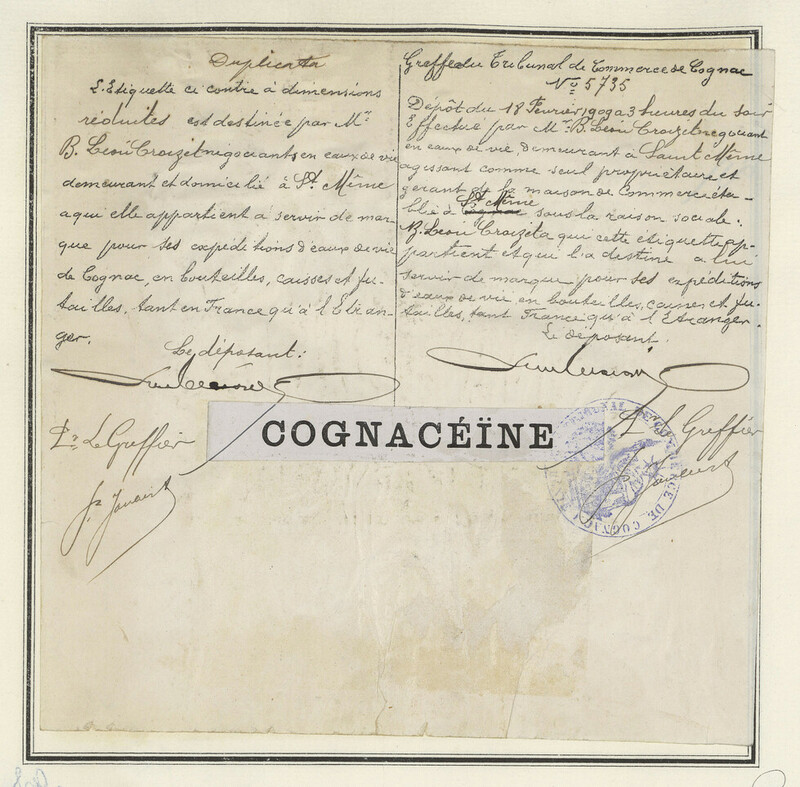 Duplicata
L'Etiquette ci contre à dimensions
réduites est destinée par Mr
B. Léon Croizet négociants en eaux de vie
demeurant et domicilié à St Même
a qui elle appartient à servir de mar-
que pour ses expéditions d'eaux de vie
de Cognac, en bouteilles, caisses et fu-
tailles, tant en France qu'à l'Etran-
ger.
Le déposant:
Pr Le Greffier
Greffe du Tribunal de Commerce de Cognac
No 5735
Dépôt du 18 Fevrier 1909 a 3 heures du soir
Effectué par Mr B. Léon Croizet négociant
en eaux de vie, demeurant à Saint Même
agissant comme seul propriétaire et
gérant de la maison de Commerce éta-
blie à St Même sous la raison sociale:
B. Léon Croizet a qui cette etiquette ap-
partient et qui l'a destine a lui
servir de marque pour ses expéditions
d'eaux de vie en bouteilles, caisses et fu-
tailles, tant France qu'à l'Etranger.
Le déposant.
Pr Le Greffier
COGNACÉÏNE
TRIBUNAL DE COMMERCE DE COGNAC